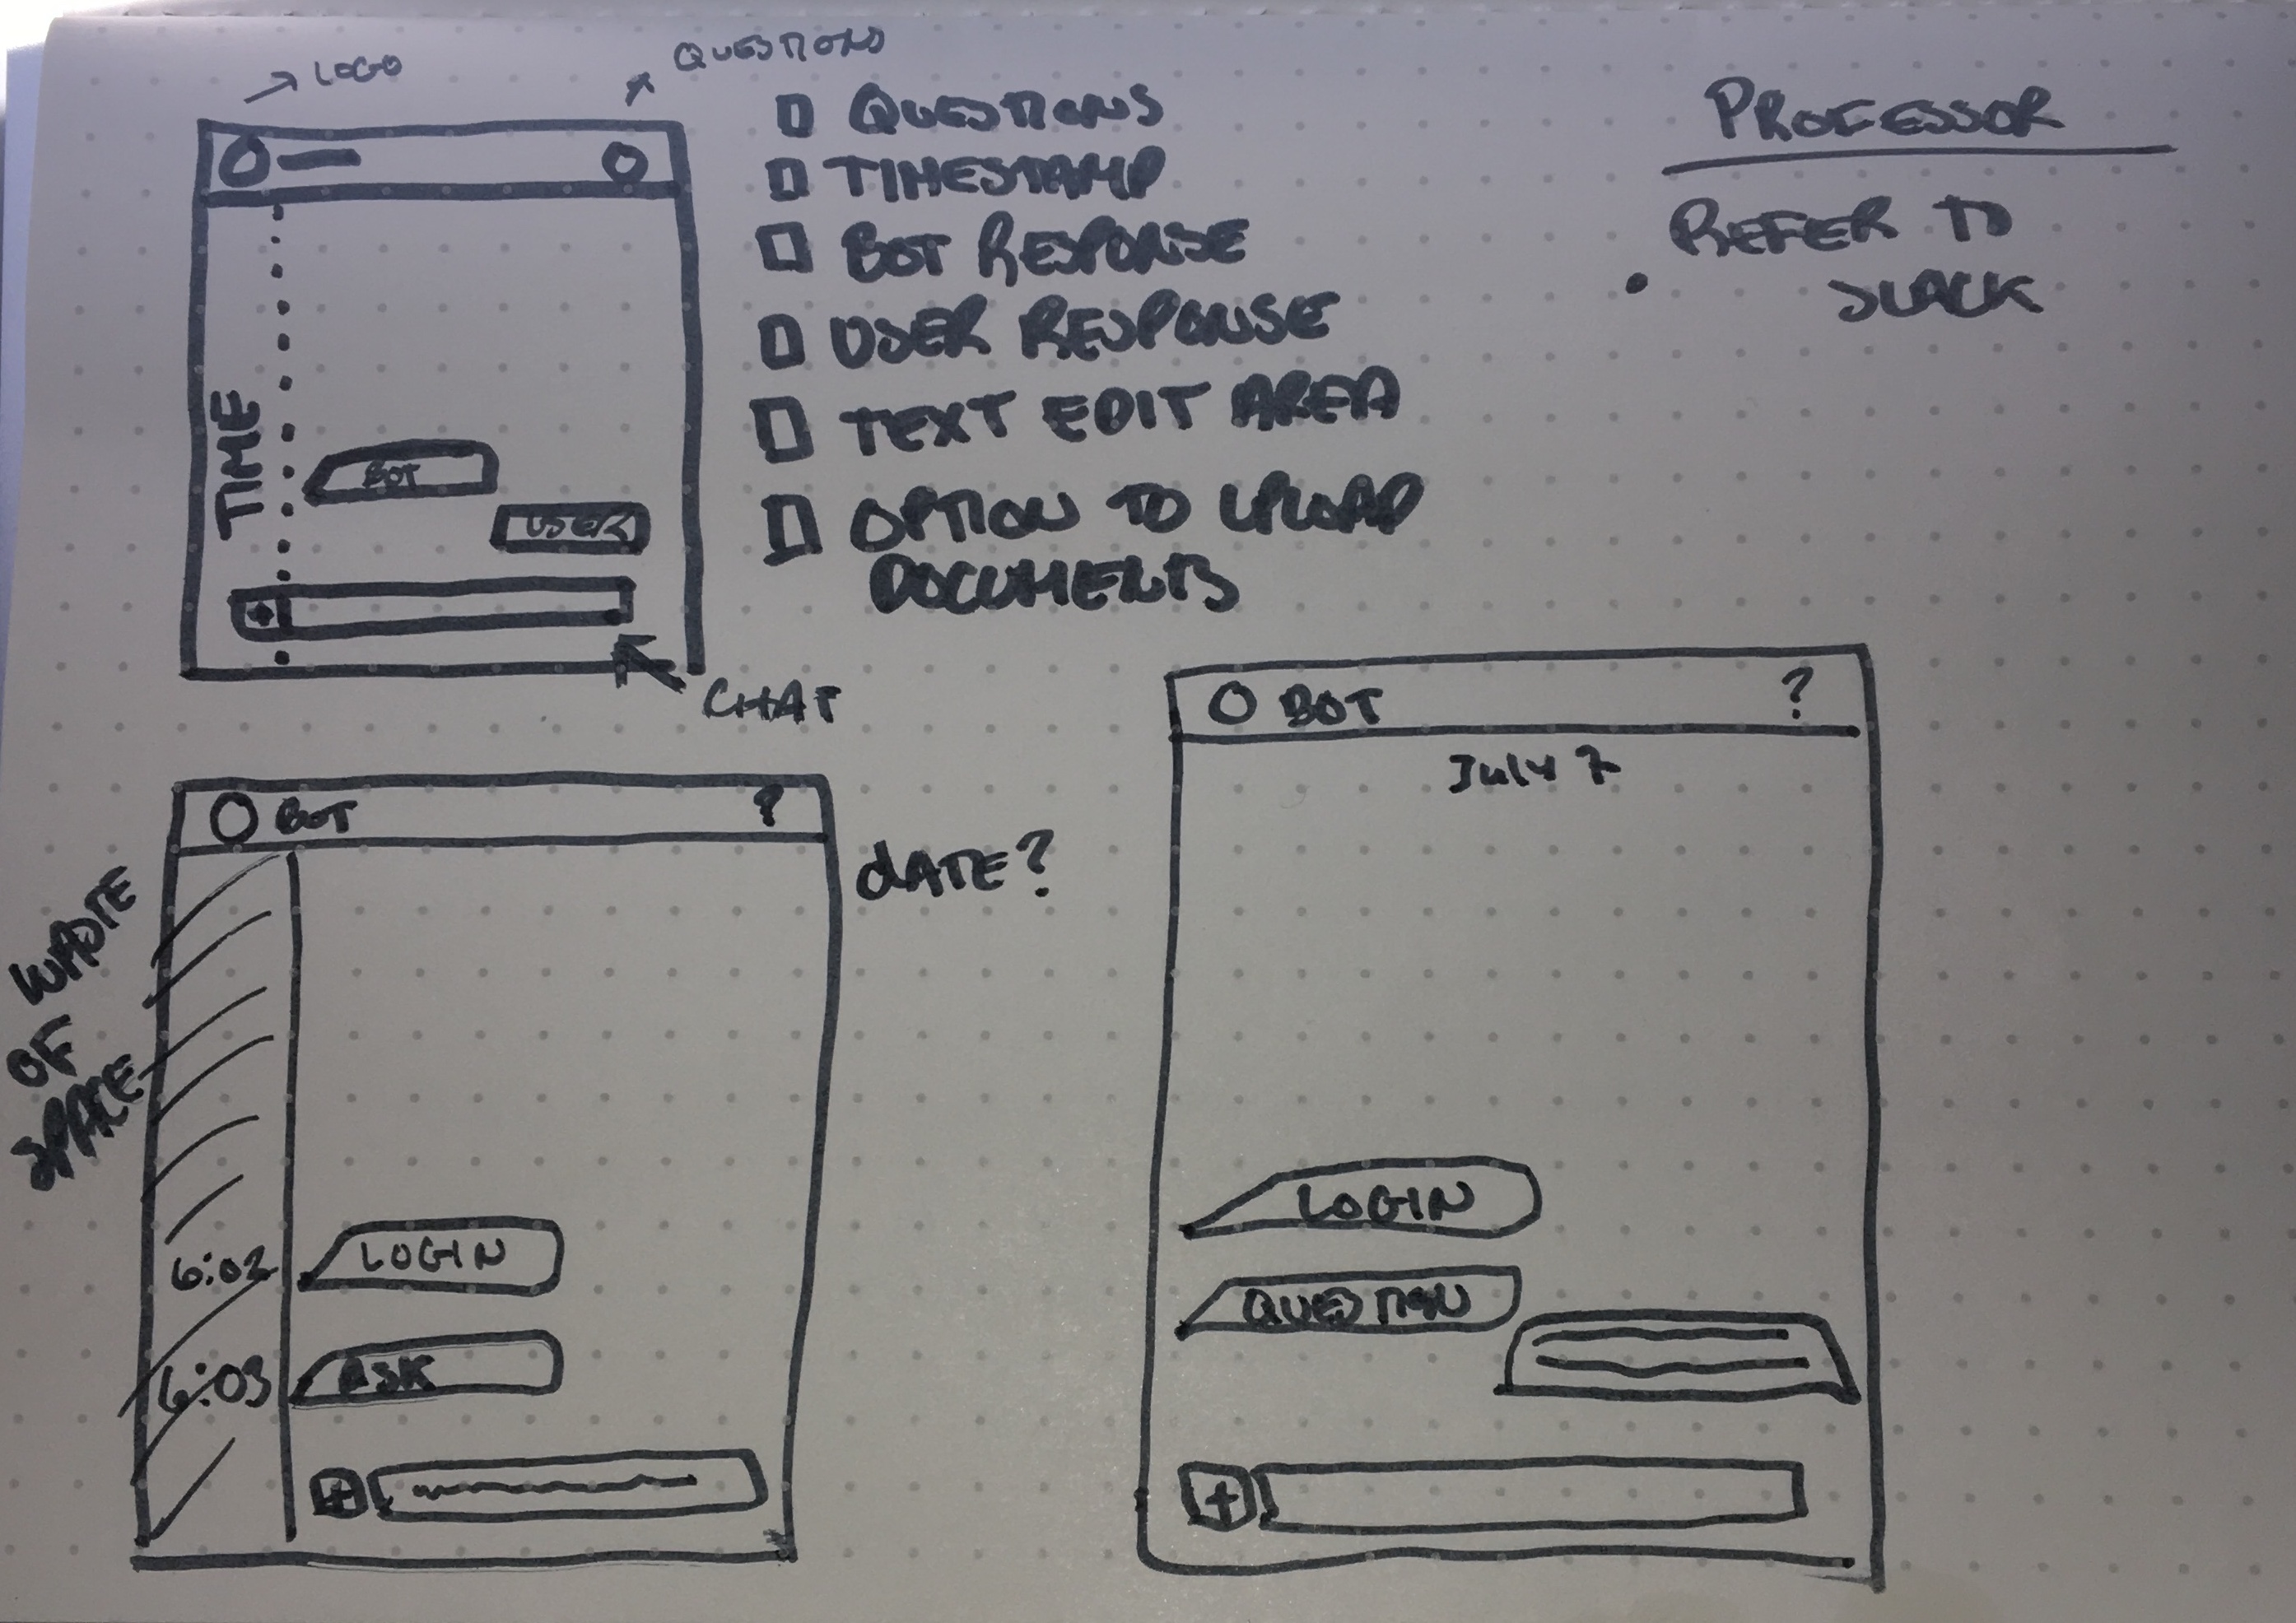 LOGO
QUESTIONS
QUESTIONS
TIMESTAMP
BOT RESPONSE
USER RESPONSE
TEXT EDIT AREA
OPTION TO UPLOAD
DOCUMENTS
PROFESSOR
REFER TO
SLACK
TIME
BOT
USER
+
CHAT
BOT ?
DATE?
WASTE
OF
SPACE
6:02 LOGIN
6:03 ASK
+
BOT ?
July 7
LOGIN
QUESTION
+